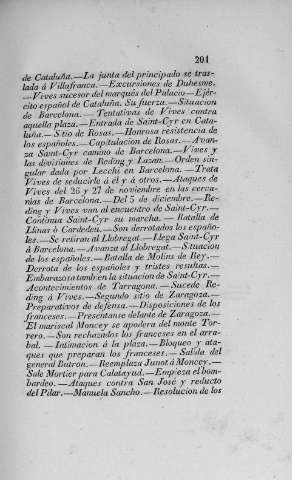 201
de Cataluña.—La junta del principado se tras-
lada á Villafranca.—Excursiones de Duhesme.
—Vives sucesor del marques del Palacio—Ejér-
cito español de Cataluña. Su fuerza.—Situacion
de Barcelona.— Tentativas de Vives contra
aquella plaza.—Entrada de Saint-Cyr en Cata-
luña.—Sitio de Rosas.—Honrosa resistencia de
los españoles.—Capitulacion de Rosas.—Avan-
za Saint-Cyr camino de Barcelona.—Vives y
las divisiones de Reding y Lazan.—Orden sin-
gular dada por Lecchi en Barcelona.—Trata
Vives de seducirle á él y á otros.—Ataques de
Vives del 26 y 27 de noviembre en las cerca-
nías de Barcelona.—Del 5 de diciembre.—Re-
ding y Vives van al encuentro de Saint-Cyr.—
Continua Saint-Cyr su marcha.— Batalla de
Llinas ó Cardedeu.—Son derrotados los españo-
les.—Se retiran al Llobregat.—Llega Saint-Cyr
á Barcelona.—Avanza al Llobregat.—Situacion
de los españoles.—Batalla de Molins de Rey.—
Derrota de los españoles y tristes resultas.—
Embarazosa tambien la situacion de Saint-Cyr.—
Acontecimientos de Tarragona.—Sucede Re-
ding á Vives.—Segundo sitio de Zaragoza.—
Preparativos de defensa.—Disposiciones de los
franceses.—Preséntanse delante de Zaragoza.—
El mariscal Moncey se apodera del monte Tor-
rero.—Son rechazados los franceses en el arra-
bal. — Intimacion á la plaza.—Bloqueo y ata-
ques que preparan los franceses.—Salida del
general Butron.—Reemplaza Junot á Moncey.—
Sale Mortier para Calatayud.—Empieza el bom-
bardeo.—Ataques contra San José y reducto
del Pilar.—Manuela Sancho.—Resolucion de los